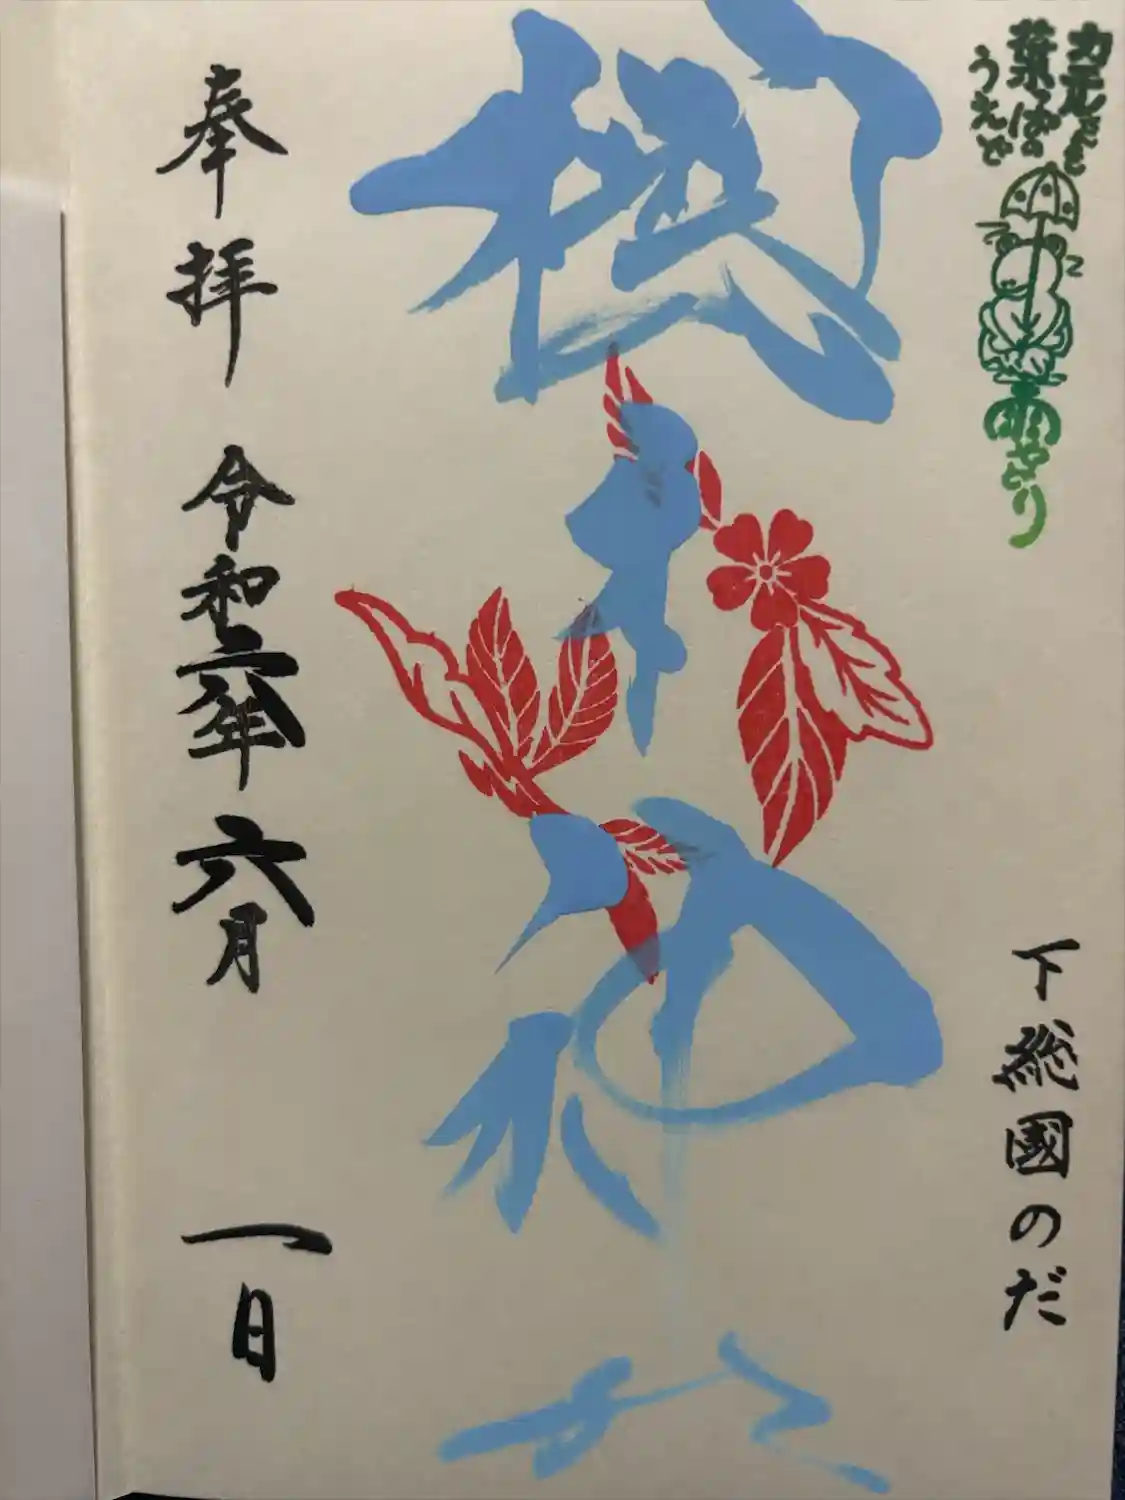 カエルさも
葉っぱの
うえで
雨やどり
下総國のだ
櫻木神社
奉拝
令和六年
六月
一日